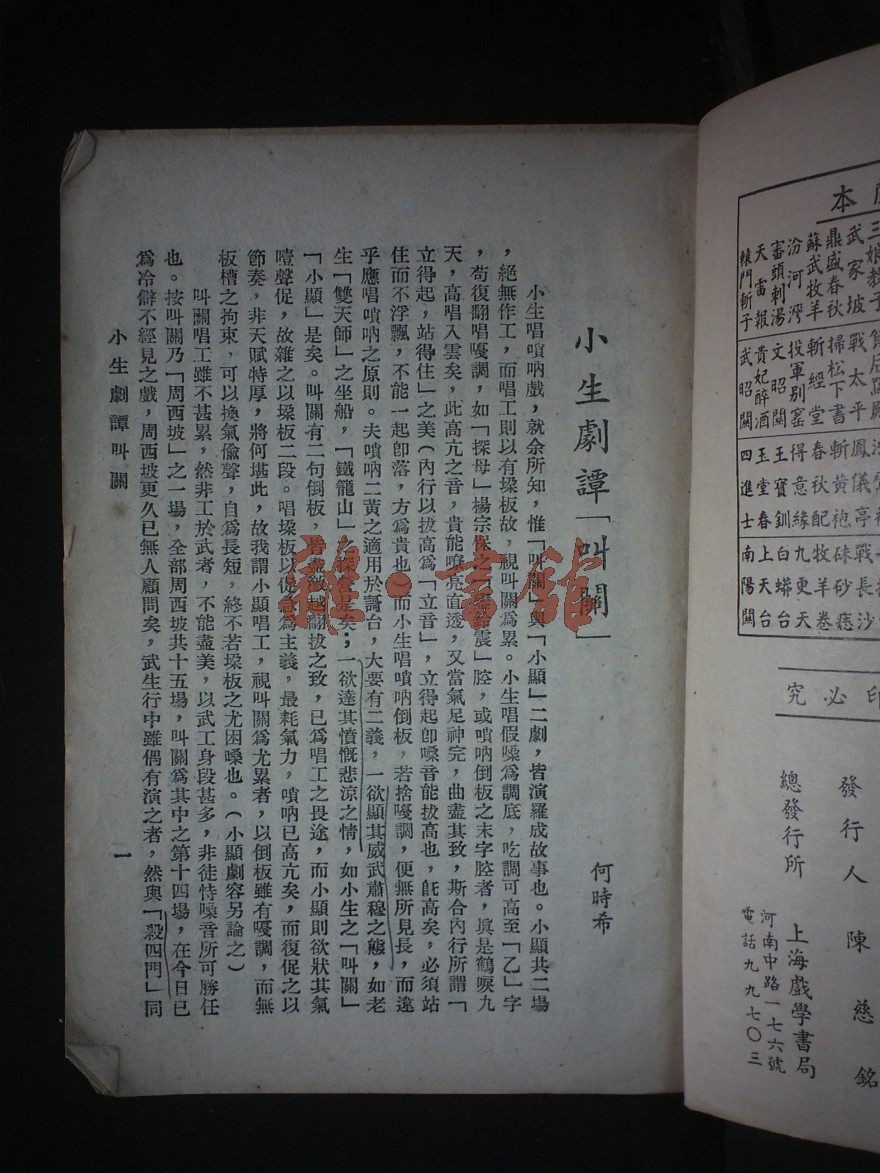 小生劇譚「叫關」
何時希
小生唱嗩吶戲，就余所知，惟「叫關」與「小顯」二劇，皆演羅成故事也。小顯共二場
，絕無作工，而唱工則以有垜板故，視叫關爲累。小生唱假嗓爲調底，吃調可高至「乙」字
，苟復翻唱嗄調，如「探母」楊宗保之「震」腔，或嗩吶倒板之末字腔者，眞是鶴唳九
天，高唱入雲矣，此高亢之音，貴能嘹亮直透，又當氣足神完，曲盡其致，斯合內行所謂「
立得起，站得住」之美（內行以拔高爲「立音」，立得起卽嗓音能拔高也，旣高矣，必須站
住而不浮飄，不能一起卽落，方爲貴也）而小生唱嗩吶倒板，若捨嗄調，便無所見長，而違
乎應唱嗩吶之原則。夫嗩吶二黃之適用於謌台，大要有二義，一欲顯其威武肅穆之態，如老
生「雙天師」之坐船，「鐵籠山」之探營是矣；一欲達其憤慨悲涼之情，如小生之「叫關」
「小顯」是矣。叫關有二句倒板，皆盡激越翻拔之致，已爲唱工之畏途，而小顯則欲狀其氣
噎聲促，故雜之以垜板二段。唱垜板以促急爲主義，最耗氣力，嗩吶已高亢矣，而復促之以
節奏，非天賦特厚，將何堪此，故我謂小顯唱工，視叫關爲尤累者，以倒板雖有嗄調，而無
板槽之拘束，可以換氣偷聲，自爲長短，終不若垜板之尤困嗓也。（小顯劇容另論之）
叫關唱工雖不甚累，然非工於武者，不能盡美，以武工身段甚多，非徒恃嗓音所可勝任
也。按叫關乃「周西坡」之一場，全部周西坡共十五場，叫關爲其中之第十四場，在今日已
爲冷僻不經見之戲，周西坡更久已無人顧問矣，武生行中雖偶有演之者，然與「殺四門」同
小生劇譚叫關
一
雜·書舘
本
三娘教子
武家坡
鼎盛春秋
蘇武牧羊
汾河灣
審頭刺湯
天雷報
轅門斬子
戰太平
掃松下書
斬經堂
投軍別窰
文昭關
貴妃醉酒
武昭關
鳳儀亭
斬黃袍
春秋配
得意緣
王寶釧
玉堂春
四進士
戰長沙
硃砂痣
牧羊卷
九更天
白蟒台
上天台
南陽關
印必究
發行人 陳慈銘
總發行所 上海戲學書局
河南中路一七六號
電話九九七〇三